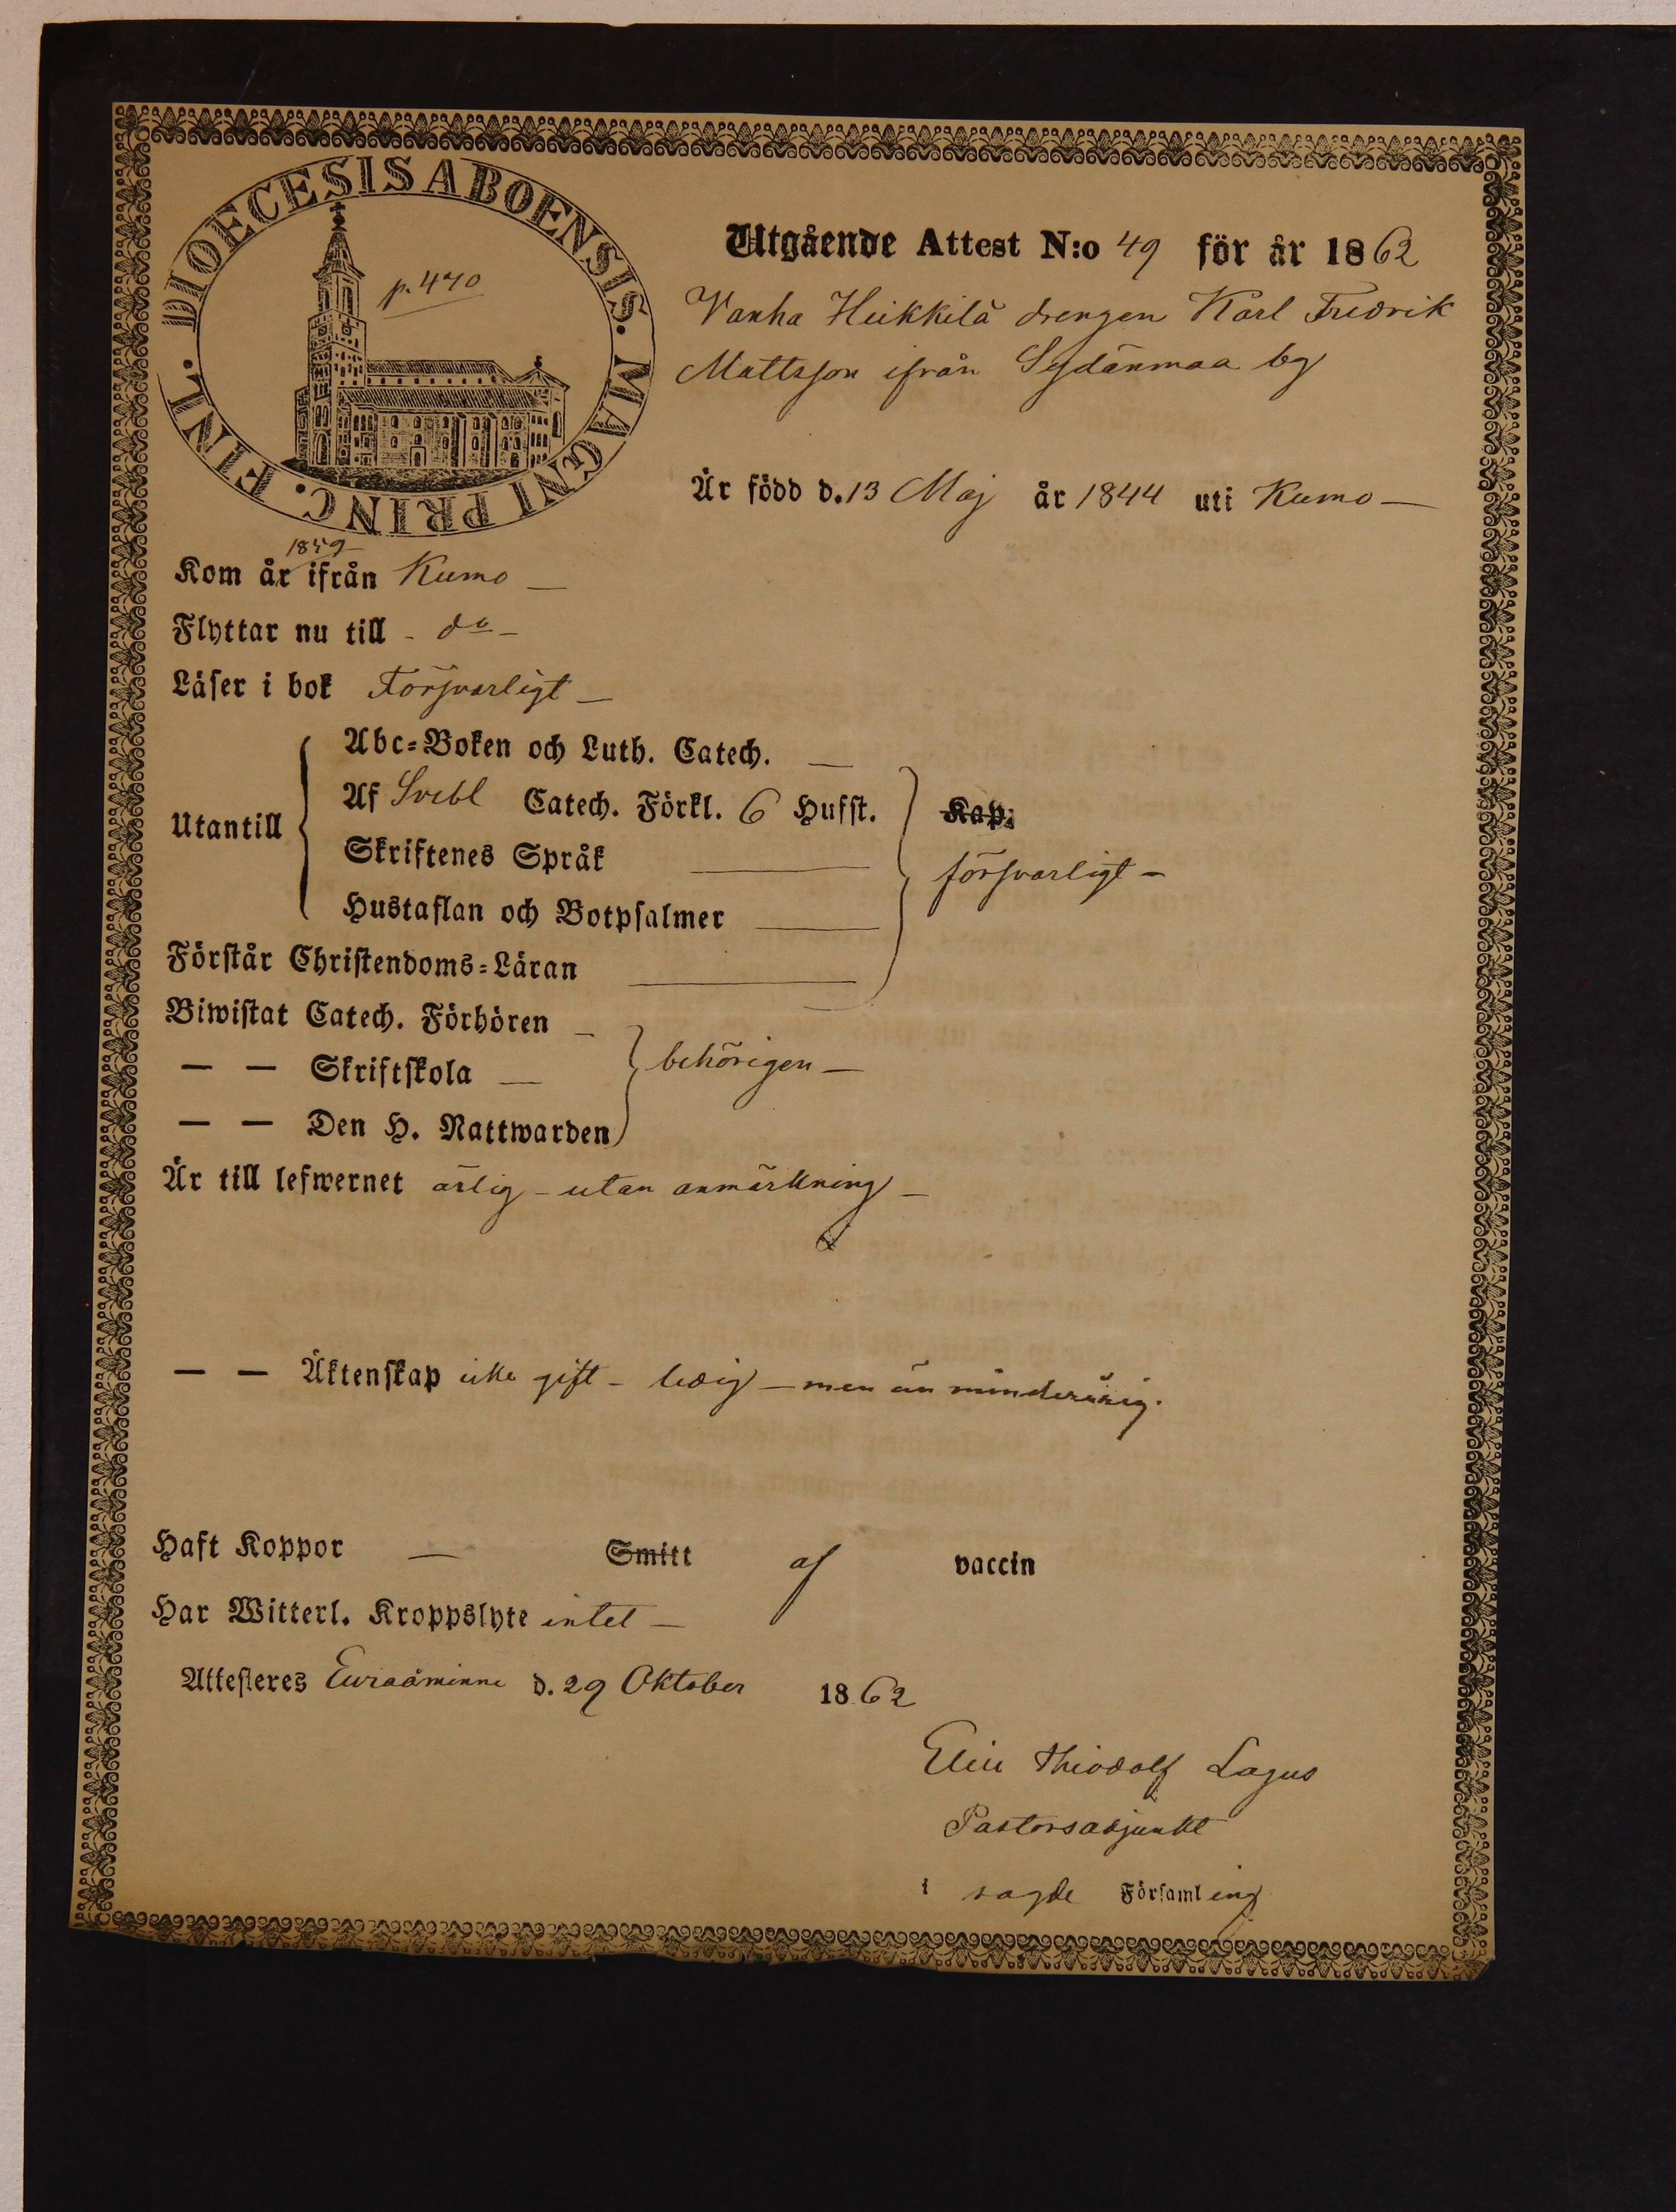 DIOECESIS ABOENSIS. MAGNI PRINC. FINL.
p. 470
Utgående Attest N:o 49 för år 1862
Vanha Heikkilä drengen Karl Fredrik
Mattsson ifrån Sydänmaa by
Är född d. 13 Maj år 1844 uti Kumo —
1859
Kom år ifrån Kumo —
Flyttar nu till - do -
Läser i bok Försvarligt —
Utantill
Abc-Boken och Luth. Catech. —
Af Svebl Catech. Förkl. 6 Hufst. Kap.
Skriftenes Språk — försvarligt —
Hustaflan och Botpsalmer —
Förstår Christendoms-Läran —
Biwistat Catech. Förhören —
— — Skriftskola — behörigen —
— — Den H. Nattwarden
Är till lefwernet ärlig - utan anmärkning —
— — Äktenskap icke gift - ledig - men än minderårig.
Haft Koppor — Smitt af vaccin
Har Witterl. Kroppslyte intet —
Attesteres Euraåminne d. 29 Oktober 1862
Thiodolf Lagus
Pastorsadjunkt
i sagde Församling